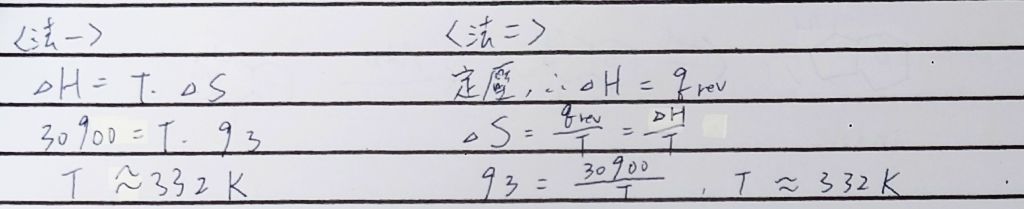 <法一>
ΔH = T. ΔS
30900 = T. 93
T ≈ 332 K
<法二>
定壓, ∴ ΔH = q rev
ΔS = q rev / T = ΔH / T
93 = 30900 / T , T ≈ 332 K